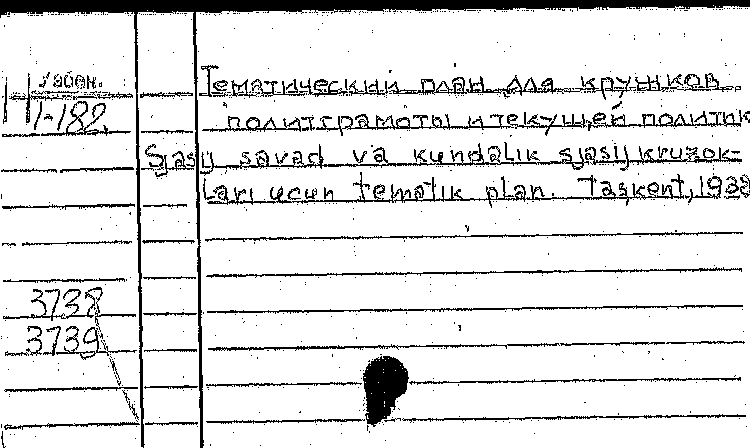 Узбек.
Тематический план для кружков
1-182. политграмоты и текущей политик
Sjasij savad va kundalik sjasij kruzok-
ları ucun tematik plan. Taşkent, 1938
3738
3739